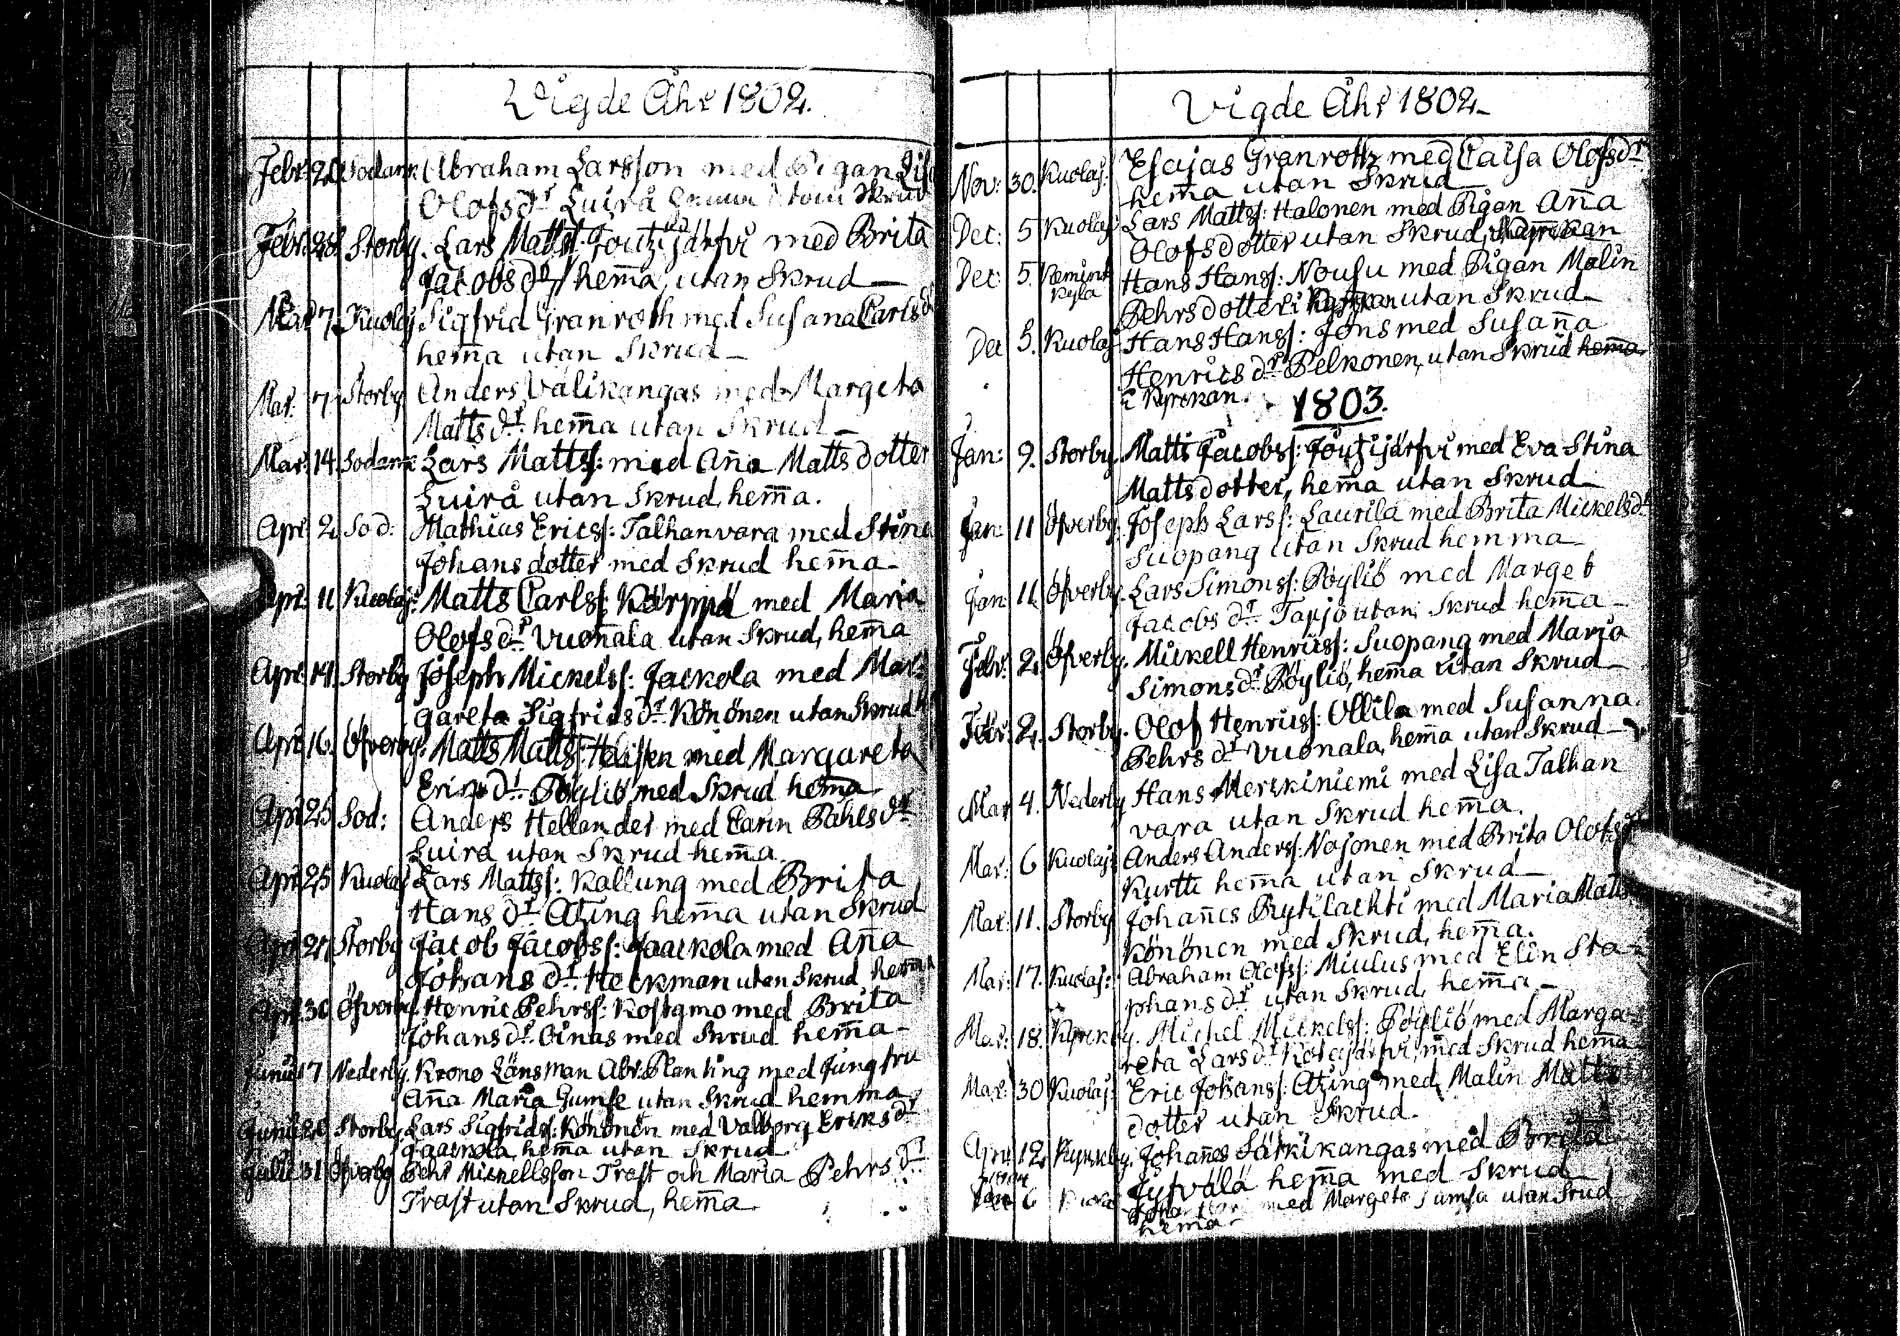 Vigde Åhr 1802.
Febr: 20 Sodank: Abraham Larsson med Pigan Lisa
Olofs dr Luirå utom Skrud
Febr: 28. Storby. Lars Matts: Joutzijärfvi med Brita
Jacobs dr hem̄a utan Skrud
Mar 7. Kuolaj. Sigfrid Granroth med Susana Carls d
hem̄a utan Skrud
Mar: 7. Storby Anders Välikangas med Margeta
Matts dr. hem̄a utan Skrud
Mar: 14. Sodank: Lars Matts: med An̄a Matts dotter
Luirå utan Skrud, hem̄a.
Apr: 2. Sod: Mathias Erics: Talhanvara med Stina
Johans dotter med Skrud hem̄a
Apr: 11 Kuolaj: Matts Carls: Kärppä med Maria
Olofs dr Vuonala utan Skrud, hem̄a
Apr: 14. Storby Joseph Mickels: Jackola med Mar-
gareta Sigfrids dr Könönen utan Skrud
Apr: 16. Öfverby: Matts Matts: med Margareta
Erics dr Pöyliö med Skrud hem̄a
Apr: 25 Sod: Anders Hellander med Carin Påhls dr
Luirå utan Skrud hem̄a.
Apr: 25 Kuolaj Lars Matts: Kallung med Brita
Hans dr Atzing hem̄a utan Skrud
Storby Jacob Jacobs: Jaackola med An̄a
Johans dr Heckman utan Skrud hem̄a
Apr: 30 Öfverby. Henric Pehrs: Kostamo med Brita
Johans dr Oinas med Skrud hem̄a
Junii 17 Nederby. Krono Länsman Abr: Planting med Jungfru
An̄a Maria Gumse utan Skrud hemma
Junii Storby. Lars Sigfrids: Könönen med Valborg Eriks dr
Jaackola, hem̄a utan Skrud
Julii 31 Öfverby Pehr Mickellsson Trast och Maria Pehrs dr
Trast utan Skrud, hem̄a
Vigde Åhr 1802
Nov: 30. Kuolaj: Esajas Granroth med Caisa Olofs dr
hem̄a utan Skrud
Dec: 5 Kuolaj: Lars Matts: Halonen med Pigan An̄a
Olofsdotter utan Skrud,
Dec: 5. Kemitrk kyla Hans Hans: Nousu med Pigan Malin
Pehrsdotter i Kyrkan utan Skrud
Dec 5. Kuolaj Hans Hans: Jons med Susan̄a
Henrics dr Pelkonen, utan Skrud hem̄a
i Kyrckan.
1803.
Jan: 9. Storby. Matts Jacobs: Joutzijärfvi med Eva Stina
Mattsdotter, hem̄a utan Skrud
Jan: 11 Öfverby. Joseph Lars: Laurila med Brita Mickels dr
Suopang utan Skrud hemma
Jan: 11. Öfverby. Lars Simons: Pöyliö med Marget
Jacobs dr Tarjo utan Skrud hem̄a
Febr: 2. Öfverby. Mickell Henrics: Suopang med Maria
Simons dr Pöyliö, hem̄a utan Skrud
Febr: 2. Storby. Olof Henrics: Ollila med Susanna
Pehrs dr Vuonala, hem̄a utan Skrud
Mar 4. Nederby Hans Merskiniemi med Lisa Talhan
vara utan Skrud hem̄a.
Mar: 6 Kuolaj: Anders Anders: Nojonen med Brita Olofs
Kurtti hem̄a utan Skrud
Mar: 11. Storby Johan̄es Pytilachti med Maria Matts
Könönen med Skrud, hem̄a.
Mar: 17. Kuolaj: Abraham Olofs: Miulus med Elin Sta-
phans dr utan Skrud, hem̄a
Mar: 18. Kyrckby. Michel Mickels: Pöyliö med Marga-
reta Lars dr Kotajärfvi, med Skrud hem̄a
Mar: 30 Kuolaj: Eric Johans: Atzing med Malin Matts
dotter utan Skrud.
Apr: 12. Kyrckby. Johan̄es Särkikangas med Brita
Jyfvälä hem̄a med Skrud
6 med Margeta Jumsa utan Srud
hem̄a